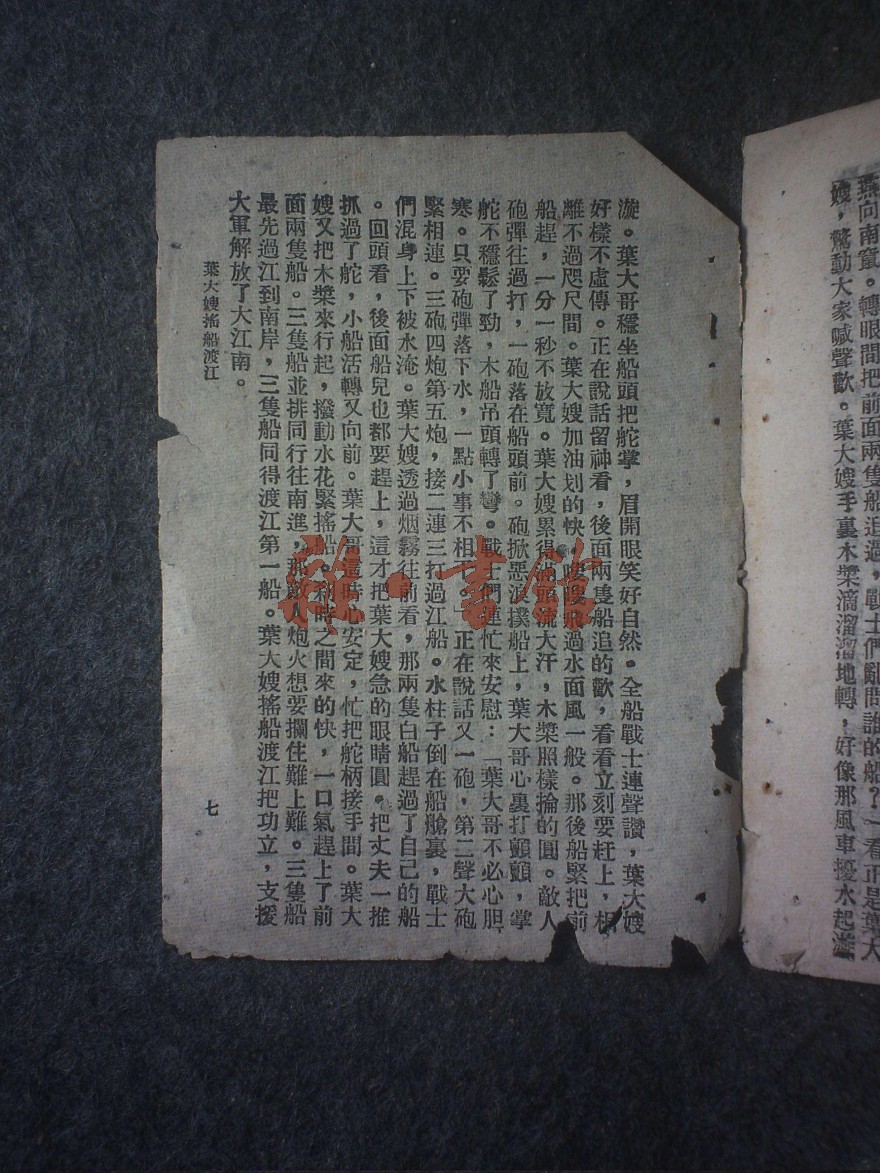 燕向南竄。轉眼間把前面兩隻船追過，戰士們亂問誰的船？一看正是葉大
嫂，驚動大家喊聲歡。葉大嫂手裏木槳滴溜溜地轉，好像那風車擾水起漩
漩。葉大哥穩坐船頭把舵掌，眉開眼笑好自然。全船戰士連聲讚，葉大嫂
好樣不虛傳。正在說話留神看，後面兩隻船追的歡，看看立刻要赶上，相
離不過咫尺間。葉大嫂加油划的快，嗖嗖船過水面風一般。那後船緊把前
船趕，一分一秒不放寬。葉大嫂累得 流大汗，木槳照樣掄的圓。敵人
砲彈往過打，一砲落在船頭前。砲掀惡波撲船上，葉大哥心裏打顫顫，掌
舵不穩鬆了勁，木船吊頭轉了彎。戰士們連忙來安慰：「葉大哥不必心胆
寒。只要砲彈落下水，一點小事不相干。」正在說話又一砲，第二聲大砲
緊相連。三砲四炮第五炮，接二連三打過江船。水柱子倒在船艙裏，戰士
們混身上下被水淹。葉大嫂透過烟霧往前看，那兩隻白船趕過了自己的船
。回頭看，後面船兒也都要趕上，這才把葉大嫂急的眼睛圓。把丈夫一推
抓過了舵，小船活轉又向前。葉大哥這時心安定，忙把舵柄接手間。葉大
嫂又把木槳來行起，撥動水花緊搖船。 時之間來的快，一口氣趕上了前
面兩隻船。三隻船並排同行往南進，那敵人炮火想要攔住難上難。三隻船
最先過江到南岸，三隻船同得渡江第一船。葉大嫂搖船渡江把功立，支援
大軍解放了大江南。
葉大嫂搖船渡江
七
雜·書館